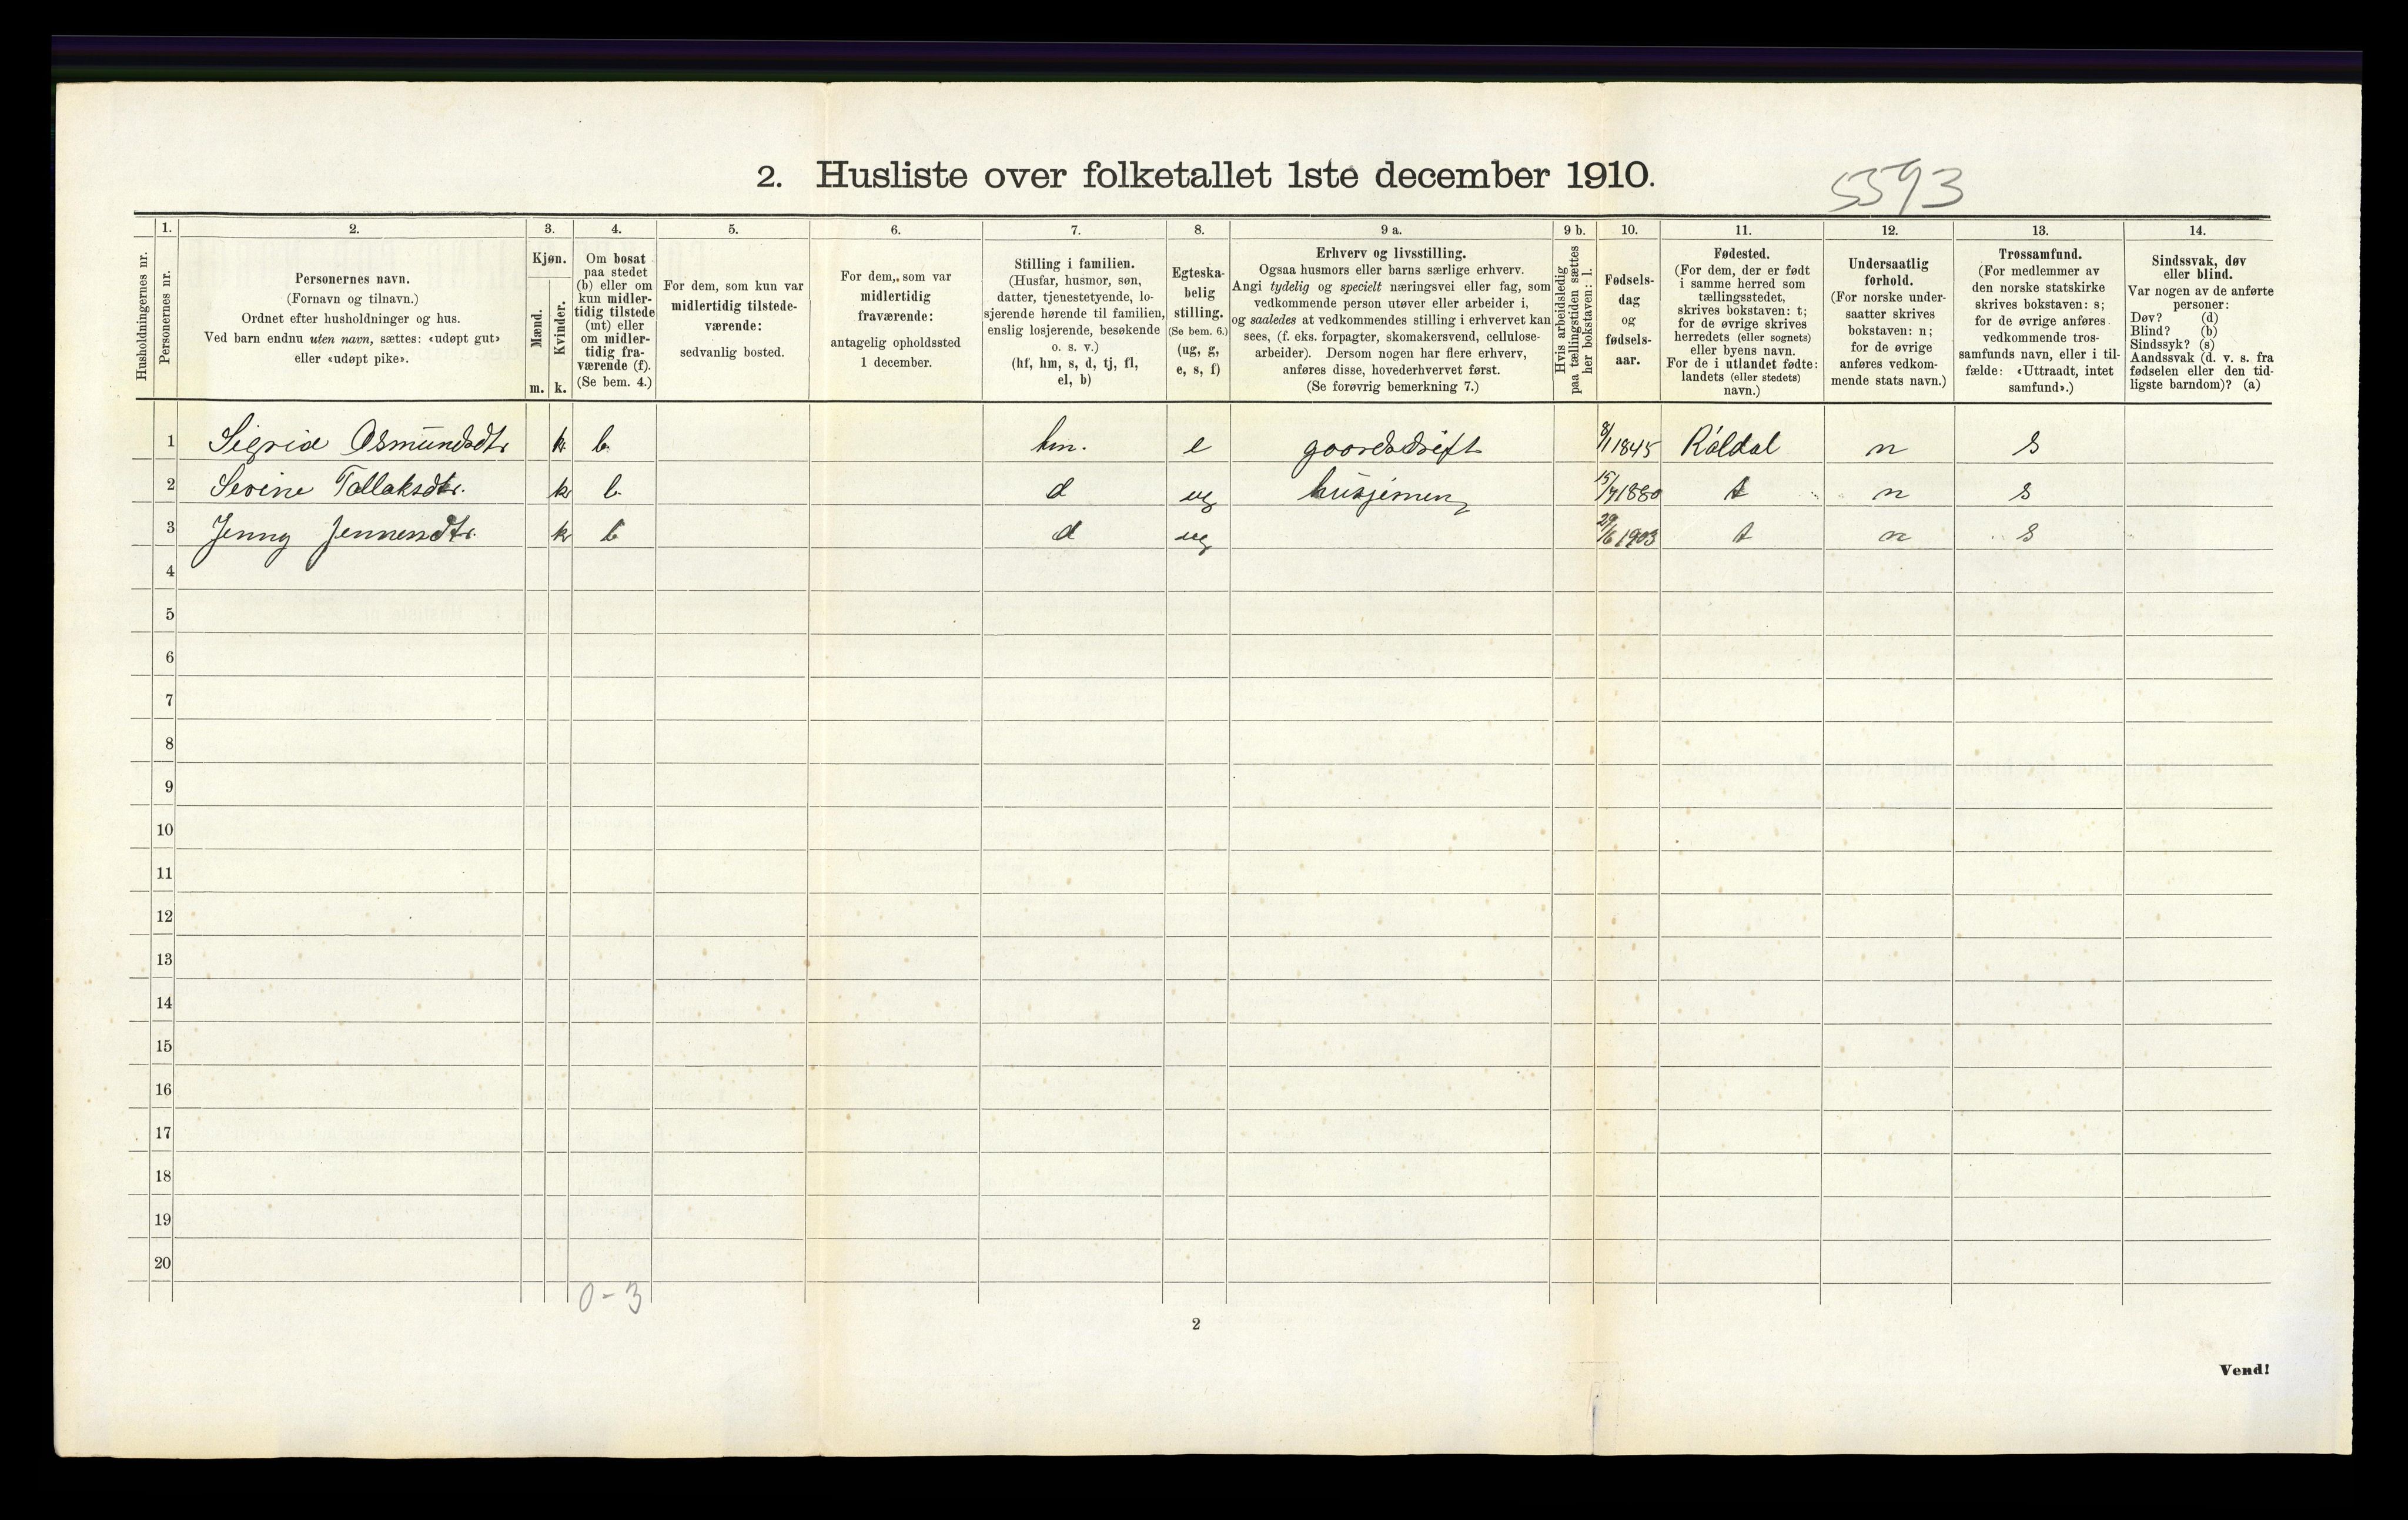 2. Husliste over folketallet 1ste december 1910.
5593
1. 2. 3. 4. 5. 6. 7. 8. 9 a. 9 b. 10. 11. 12. 13. 14.
Husholdningernes nr.
Personernes nr.
Personernes navn.
(Fornavn og tilnavn.)
Ordnet efter husholdninger og hus.
Ved barn endnu uten navn, sættes: «udøpt gut»
eller «udøpt pike».
Kjøn.
Mænd.
Kvinder.
m. k.
Om bosat
paa stedet
(b) eller om
kun midler-
tidig tilstede
(mt) eller
om midler-
tidig fra-
værende (f).
(Se bem. 4.)
For dem, som kun var
midlertidig tilstede-
værende:
sedvanlig bosted.
For dem, som var
midlertidig
fraværende:
antagelig opholdssted
1 december.
Stilling i familien.
(Husfar, husmor, søn,
datter, tjenestetyende, lo-
sjerende hørende til familien,
enslig losjerende, besøkende
o. s. v.)
(hf, hm, s, d, tj, fl,
el, b)
Egteska-
belig
stilling.
(Se bem. 6.)
(ug, g,
e, s, f)
Erhverv og livsstilling.
Ogsaa husmors eller barns særlige erhverv.
Angi tydelig og specielt næringsvei eller fag, som
vedkommende person utøver eller arbeider i,
og saaledes at vedkommendes stilling i erhvervet kan
sees, (f. eks. forpagter, skomakersvend, cellulose-
arbeider). Dersom nogen har flere erhverv,
anføres disse, hovederhvervet først.
(Se forøvrig bemerkning 7.)
Hvis arbeidsledig
paa tællingstiden sættes
her bokstaven: l.
Fødsels-
dag
og
fødsels-
aar.
Fødested.
(For dem, der er født
i samme herred som
tællingsstedet,
skrives bokstaven: t;
for de øvrige skrives
herredets (eller sognets)
eller byens navn.
For de i utlandet fødte:
landets (eller stedets)
navn.)
Undersaatlig
forhold.
(For norske under-
saatter skrives
bokstaven: n;
for de øvrige
anføres vedkom-
mende stats navn.)
Trossamfund.
(For medlemmer av
den norske statskirke
skrives bokstaven: s;
for de øvrige anføres
vedkommende tros-
samfunds navn, eller i til-
fælde: «Uttraadt, intet
samfund».)
Sindssvak, døv
eller blind.
Var nogen av de anførte
personer:
Døv? (d)
Blind? (b)
Sindssyk? (s)
Aandssvak (d. v. s. fra
fødselen eller den tid-
ligste barndom)? (a)
1 Sigrid Osmundsdtr k b hm. e gaardsdrift 8/1 1845 Röldal n s
2 Sevine Tollaksdtr. k b d ug husjerning 15/7 1880 t n s
3 Jenny Jennesdtr. k b d ug 29/6 1903 t n s
4
5
6
7
8
9
10
11
12
13
14
15
16
17
18
19
20
0-3
2
Vend!